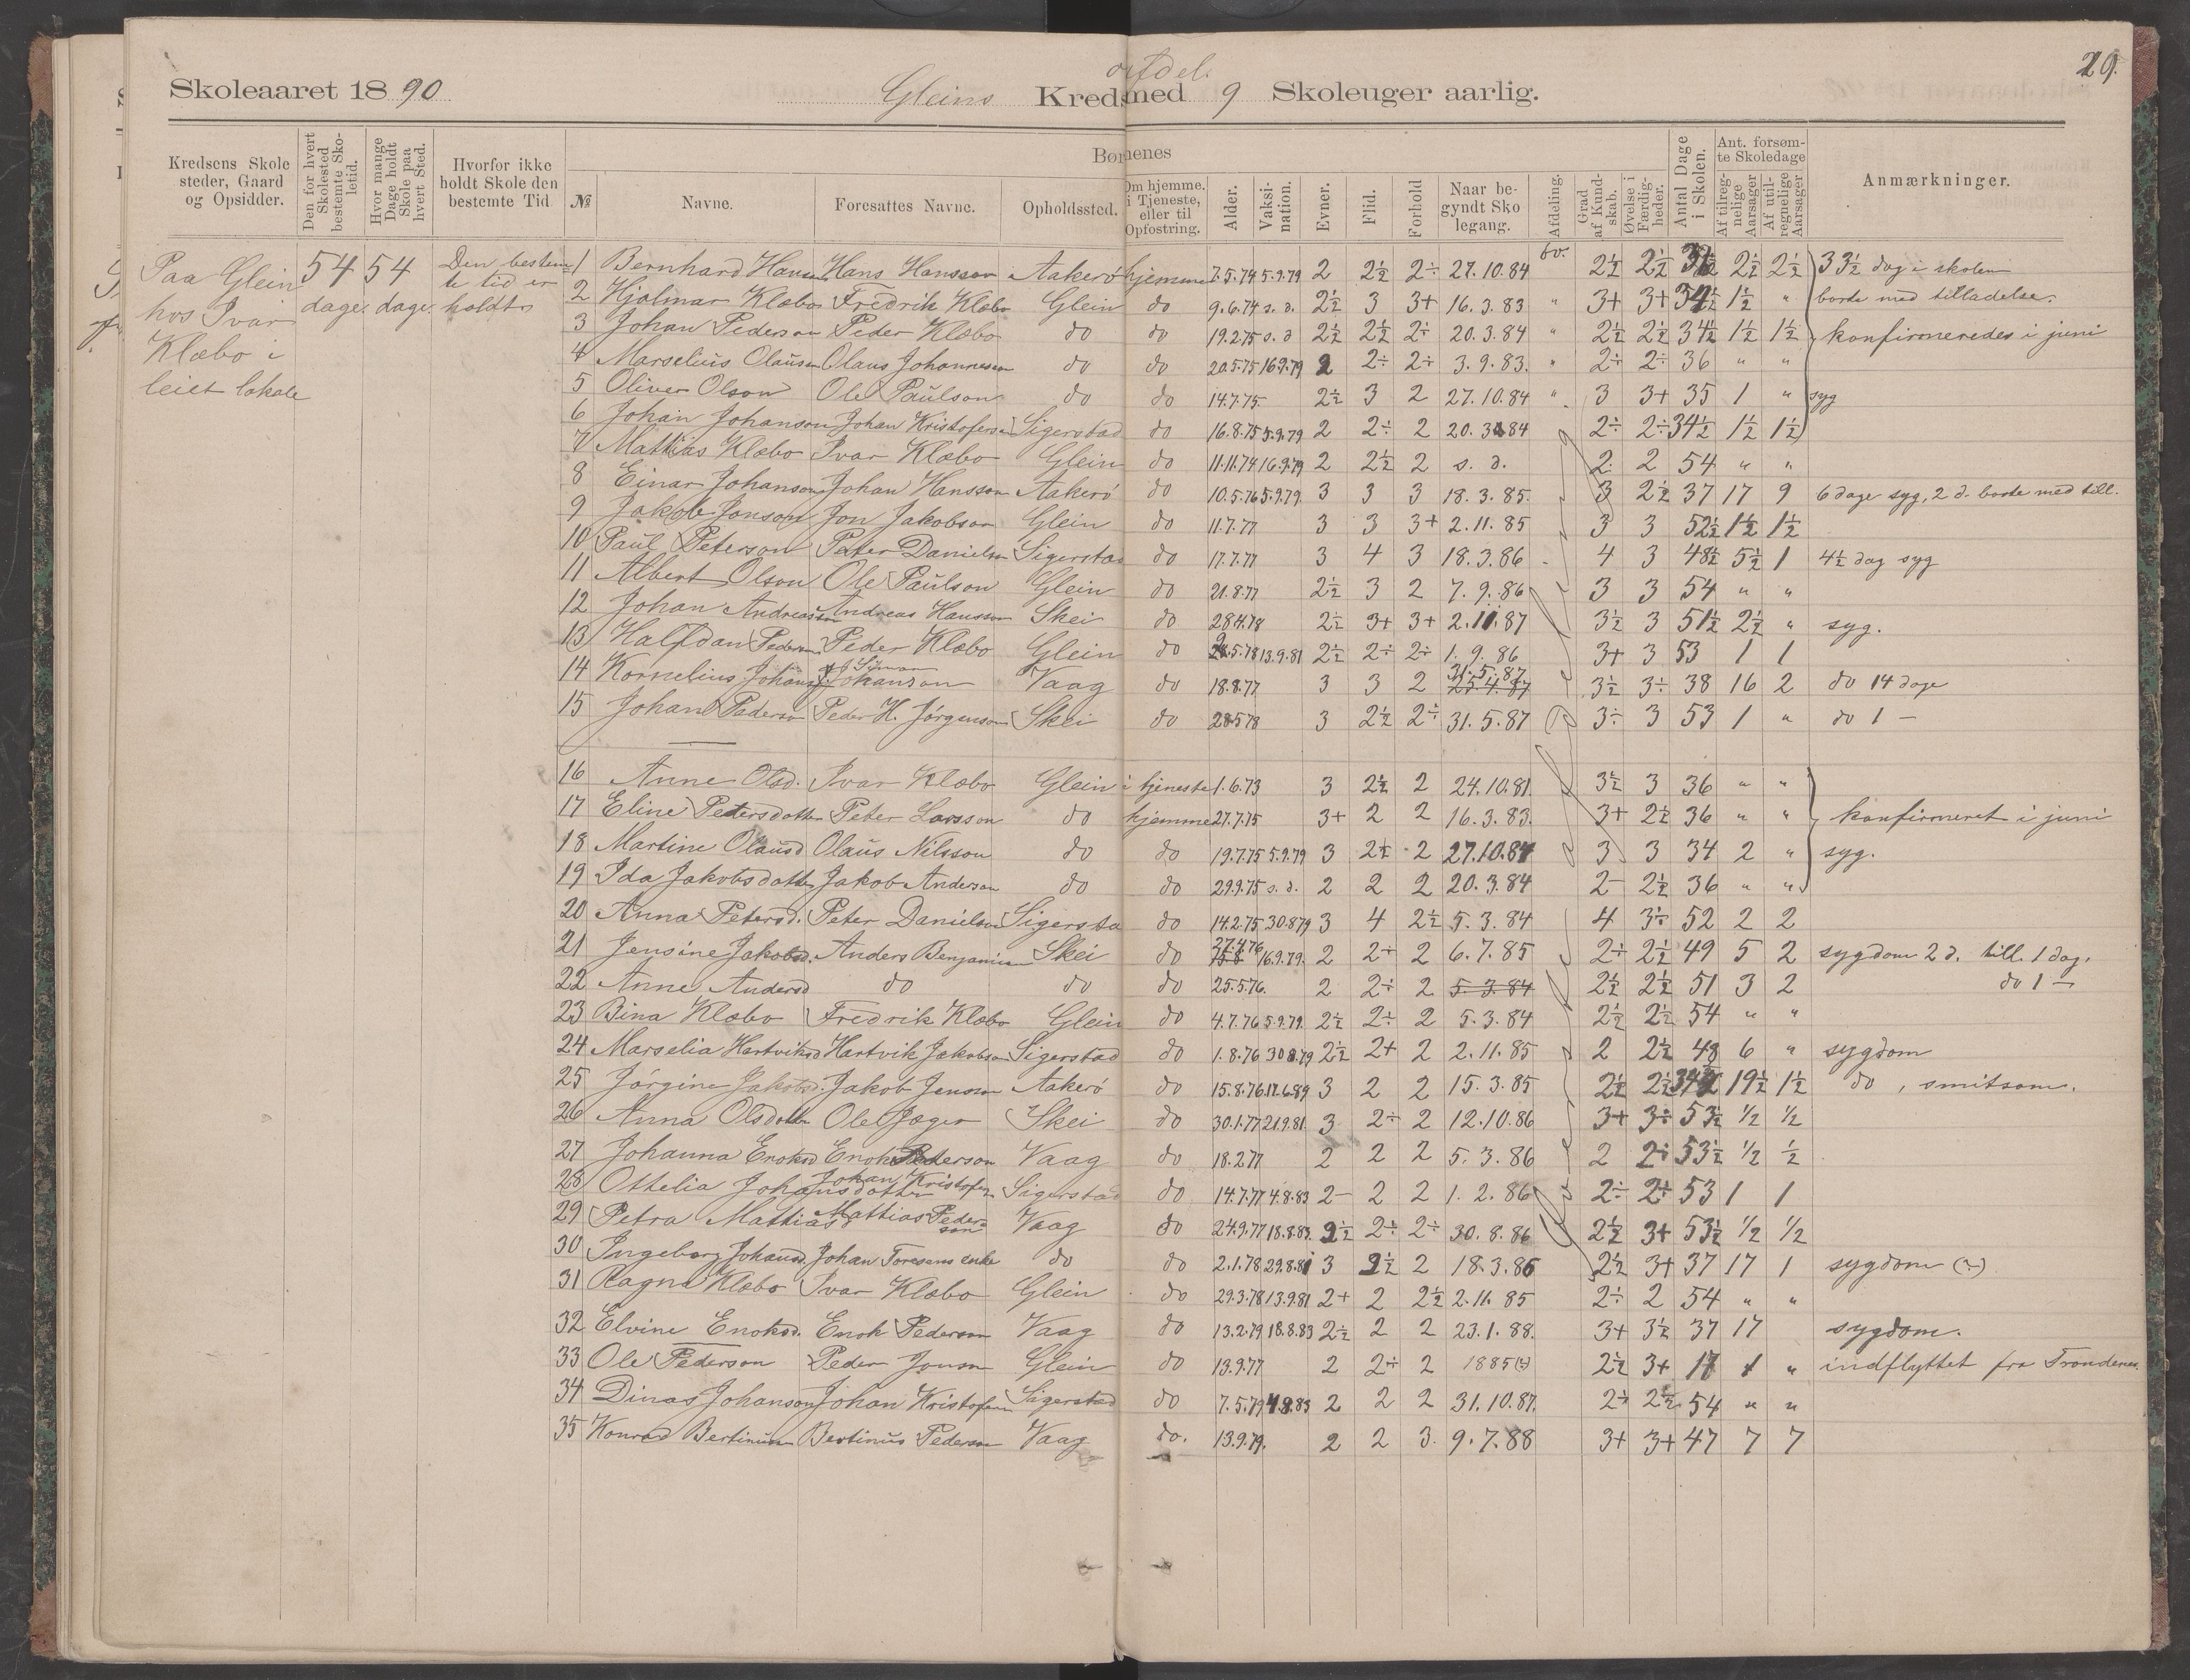 29.
Skoleaaret 1890
Gleins Kreds med 9 Skoleuger aarlig.
Kredsens Skolesteder, Gaard og Opsidder.
Den for hvert Skolested bestemte Skoletid.
Hvor mange Dage holdt Skole paa hvert Sted.
Hvorfor ikke holdt Skole den bestemte Tid
Børnenes
№
Navne.
Foresattes Navne.
Opholdssted.
Om hjemme, i Tjeneste, eller til Opfostring.
Alder.
Vaksination.
Evner.
Flid.
Forhold
Naar begyndt Skolegang.
Afdeling.
Grad af Kundskab.
Øvelse i Færdigheder.
Antal Dage i Skolen.
Ant. forsømte Skoledage
Af tilregnelige Aarsager
Af utilregnelige Aarsager.
Anmærkninger.
Paa Glein hos Ivar Klæbo i leiet lokale
54 dage. 54 dage. Den bestemte tid er holdt
1 Bernhard Hans Hansson Aakerö hjemme 7.5.74 5.9.79 2 2½ 2÷ 27.10.84 2½ 2½ 2½ 2½ 33½ dag i skolen
2 Hjalmar Klæbo Fredrik Klæbo Glein do 9.6.74 s. d. 2½ 3 3+ 16.3.83 " 3+ 3+ 34½ 1½ " borte med tilladelse.
3 Johan Pederson Peder Klæbo do do 19.2.75 s. d 2½ 2½ 2÷ 20.3.84 " 2½ 2½ 34½ 1½ 1½ konfirmeredes i juni
4 Marselius Olausen Olaus Johannesson do do 20.5.75 16.9.79 2 2÷ 2÷ 3.9.83. " 2÷ 2÷ 36 " "
5 Oliver Olson Ole Paulson do do 14.7.75. 2½ 3 2 27.10.84 " 3 3+ 35 1 " syg
6 Johan Johanson Johan Kristoferson Sigerstad do 16.8.75 5.9.79 2 2÷ 2 20.3.84 2÷ 2÷ 34½ 1½ 1½
7 Mattias Klæbo Ivar Klæbo Glein do 11.11.74 16.9.79 2 2½ 2 s. d. 2 2 54 " "
8 Einar Johanson Johan Hansson Aakerö do 10.5.76 5.9.79 3 3 3 18.3.85. 3 2½ 37 17 9 6 dage syg, 2 d. borte med till.
9 Jakob Jonson Jon Jakobson Glein do 11.7.77 3 3 3+ 2.11.85 3 3 52½ 1½ 1½
10 Paul Peterson Peter Danielsen Sigerstad do 17.7.77 3 4 3 18.3.86 4 3 48½ 5½ 1 4½ dag syg
11 Albert Olson Ole Paulson Glein do 21.8.77 2½ 3 2 7.9.86 3 3 54 " "
12 Johan Andreasson Andreas Hansson Skei do 28.4.78 2½ 3+ 3+ 2.11.87 3½ 3 51½ 2½ " syg.
13 Halfdan Pederson Peder Klæbo Glein do 5.78 13.9.81 2½ 2÷ 2÷ 1.9.86 3+ 3 53 1 1
14 Kornelius Johans Simon Johanson Vaag do 18.8.77 3 3 2 31.5.87 25.4.87 3½ 3÷ 38 16 2 do 14 dage
15 Johan Pederson Peder H. Jörgenson Skei do 28.5.78 3 2½ 2÷ 31.5.87 3÷ 3 53 1 " do 1 —
16 Anne Olsd. Ivar Klæbo Glein i tjeneste 1.6.73 3 2½ 2 24.10.81. 3½ 3 36 " "
17 Eline Petersdotter Peter Larsson do hjemme 27.7.75 3+ 2 2 16.3.83. 3+ 2½ 36 " " konfirmeret i juni
18 Martine Olausd Olaus Nilsson do do 19.7.75 5.9.79 3 2½ 2 27.10.84 3 3 34 2 " syg.
19 Ida Jakobsdotter Jakob Anderson do do 29.9.75 s. d. 2 2 2 20.3.84 2- 2½ 36 " "
20 Anna Petersd. Peter Danielson Sigersta do 14.2.75 30.8.79 3 4 2½ 5.3.84 4 3÷ 52 2 2
21 Jensine Jakobsd. Anders Benjaminsen Skei do 27.4.76 16.9.79. 2 2÷ 2 6.7.85 2÷ 2½ 49 5 2 sygdom 2 d. till. 1 dag.
22 Anne Andersd do do do 25.5.76. 2 2÷ 2 5.3.84 2½ 2½ 51 3 2 do 1 —
23 Bina Klæbo Fredrik Klæbo Glein do 4.7.76 5.9.79. 2½ 2÷ 2 5.3.84 2½ 2½ 54 " "
24 Marselia Hartviksd Hartvik Jakobson Sigerstad do 1.8.76 30.8.79 2½ 2+ 2 2.11.85 2 2½ 48 6 " sygdom
25 Jörgine Jakobsd. Jakob Jensson Aakerö do 15.8.76 17.6.89 3 2 2 15.3.85 2½ 2½ 34½ 19½ 1½ do, smitsom.
26 Anna Olsdotter Ole Jæger Skei do 30.1.77 21.9.81 3 2÷ 2 12.10.86 3+ 3÷ 53½ ½ ½
27 Johanna Enoksd Enok Pederson Vaag do 18.2.77 2 2 2 5.3.86 2 2÷ 53½ ½ ½
28 Othelia Johansdotter Johan Kristofers Sigerstad do 14.7.77 4.8.83 2- 2 2 1.2.86 2÷ 2+ 53 1 1
29 Petra Mattiasd Mattias Pederson Vaag do 24.9.77 18.8.83. 2½ 2÷ 2÷ 30.8.86 2½ 3+ 53½ ½ ½
30 Ingeborg Johansd. Johan Toresens enke do do 2.1.78 29.8.81 3 2½ 2 18.3.86 2½ 3+ 37 17 1 sygdom (?)
31 Ragna Klæbo Ivar Klæbo Glein do 29.3.78 13.9.81 2+ 2 2½ 2.11.85 2÷ 2 54 " "
32 Elvine Enoksd. Enok Pederson Vaag do 13.2.79 18.8.83 2½ 2 2 23.1.88. 3+ 3½ 37 17 sygdom.
33 Ole Pederson Peder Jonson Glein do 13.9.77 2 2÷ 2 1885(?) 2½ 3+ 17 1 " indflyttet fra Trondenes
34 Dinas Johanson Johan Kristoferson Sigerstad do 7.5.79 4.8.83 2 2 2 31.10.87. 2÷ 2½ 54 " "
35 Konrad Bertinusen Bertinus Pederson Vaag do. 13.9.79. 2 2 3. 9.7.88 3+ 3+ 47 7 7